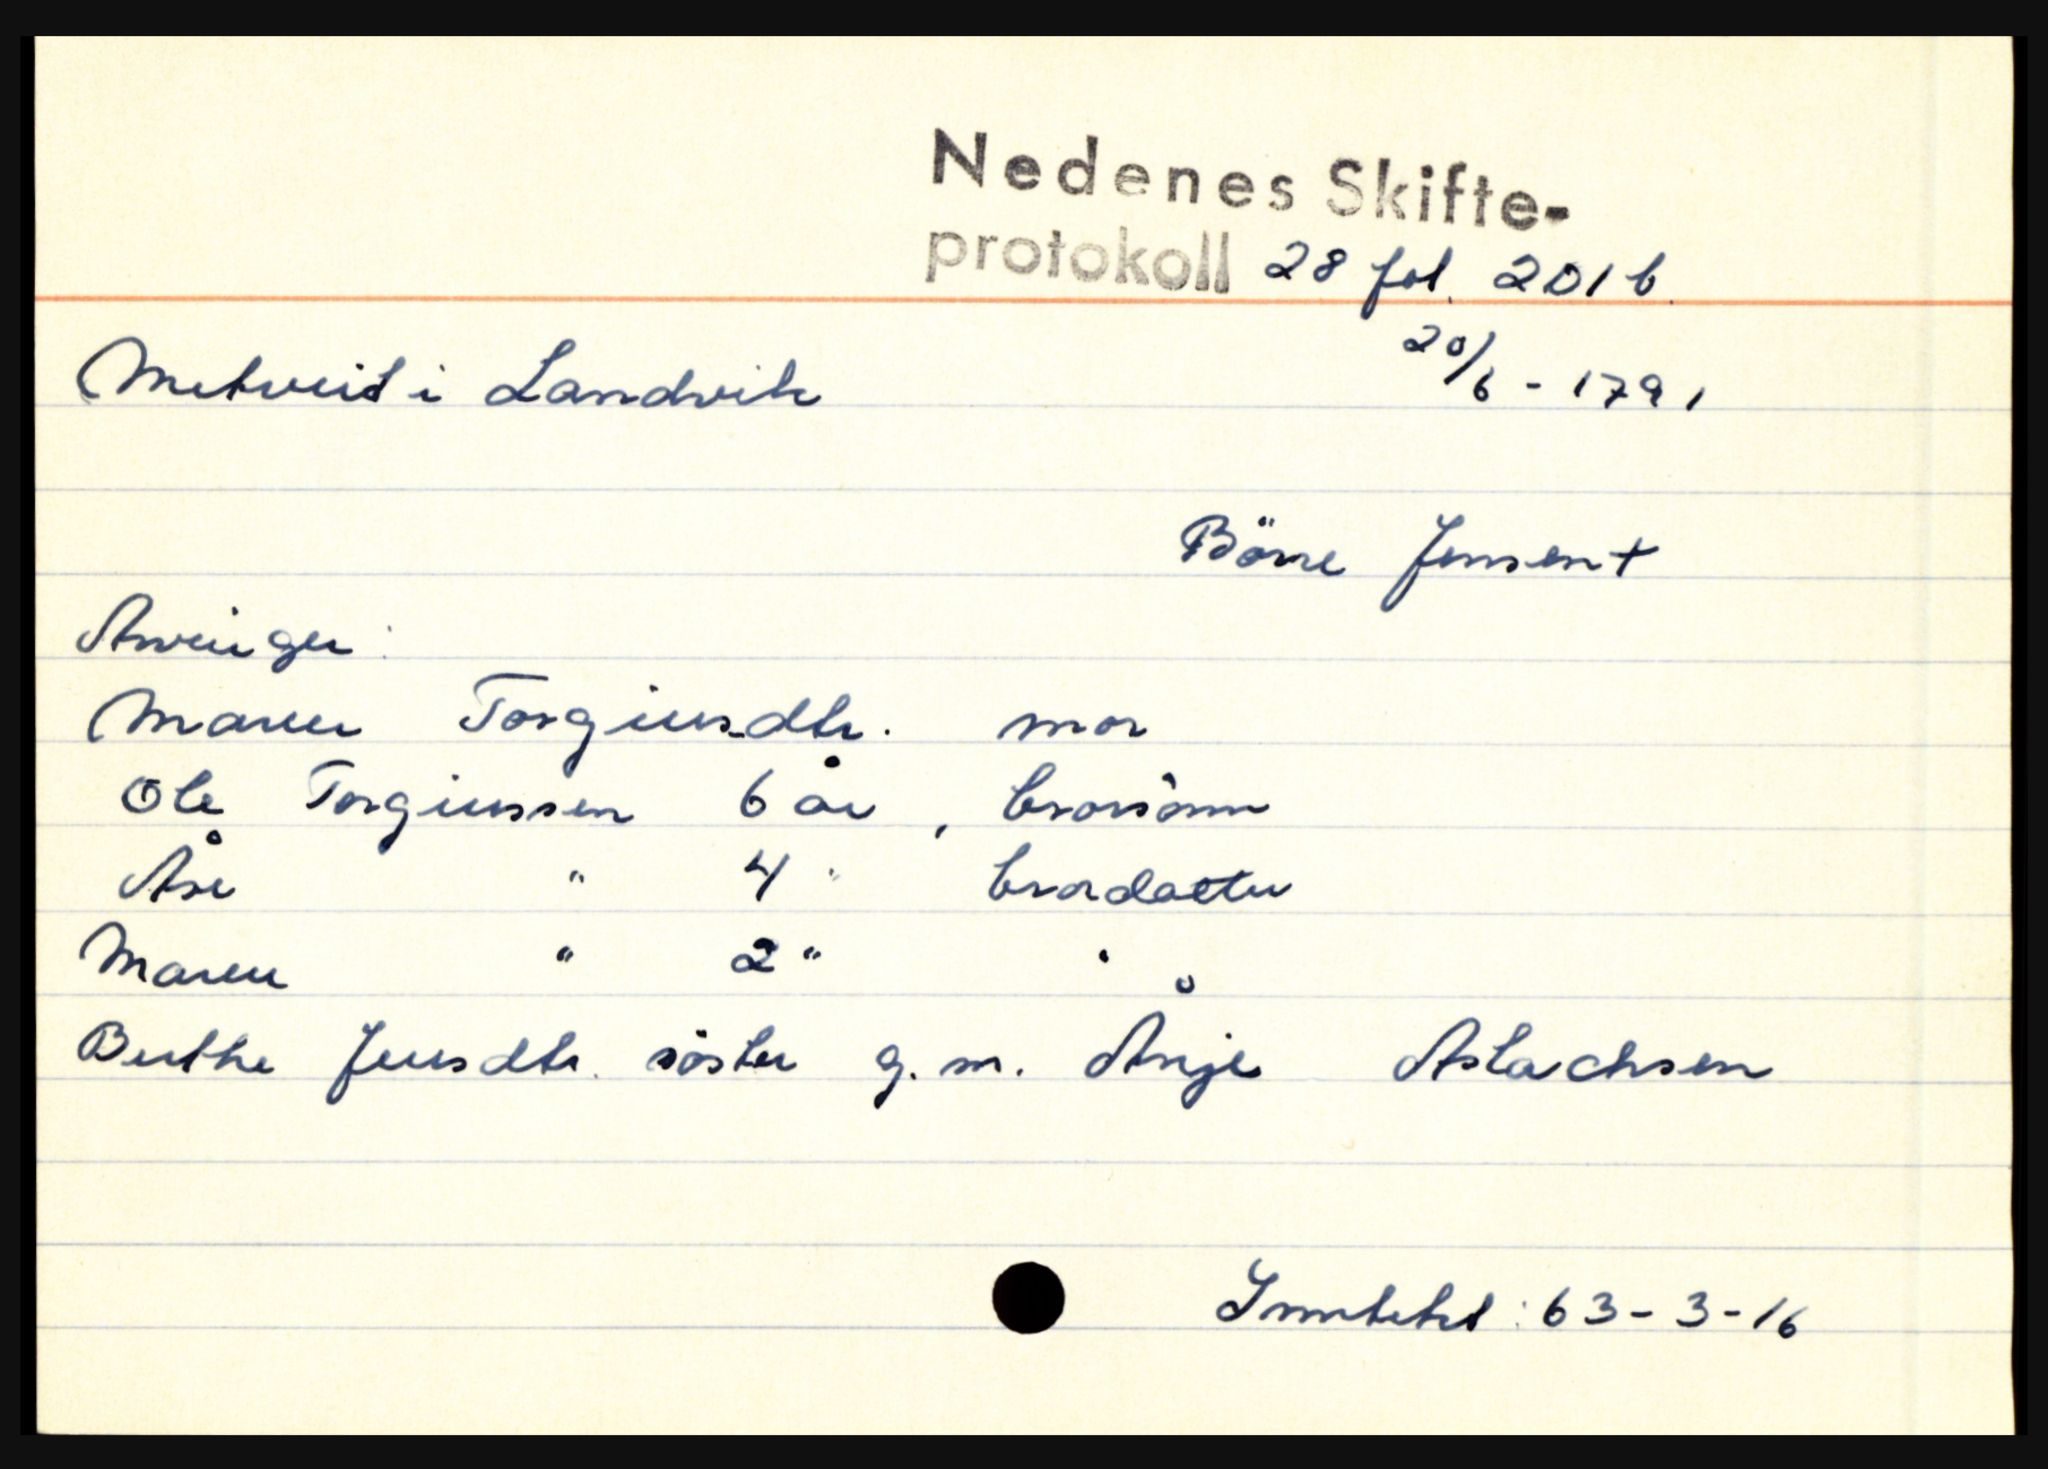 Nedenes Skifte-
protokoll 28 fol. 201 b.
Metveit i Landvik
20/6 - 1791
Börre Jensen +
Arvinger:
Maren Torgiusdtr. mor
Ole Torgiussen 6 år, brorsönn
Åse " 4 " brordatter
Maren " 2 " "
Berthe Jensdtr. söster g. m. Ånje Aslachsen
Inntekt: 63-3-16